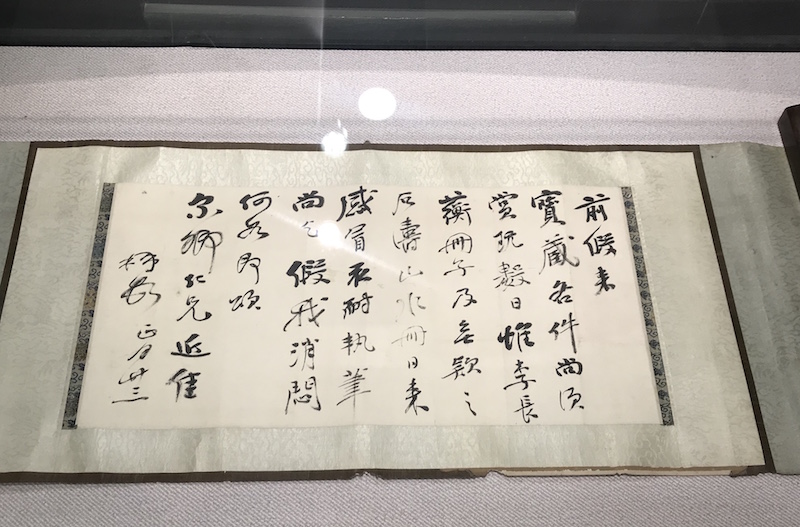 前假来
寶藏各件尚須
赏玩數日惟李長
蘅冊子及無款之
石濤山水冊日来
感冒耐執筆
尚乞假我消悶
何如即頌
仁兄近佳
正月廿三